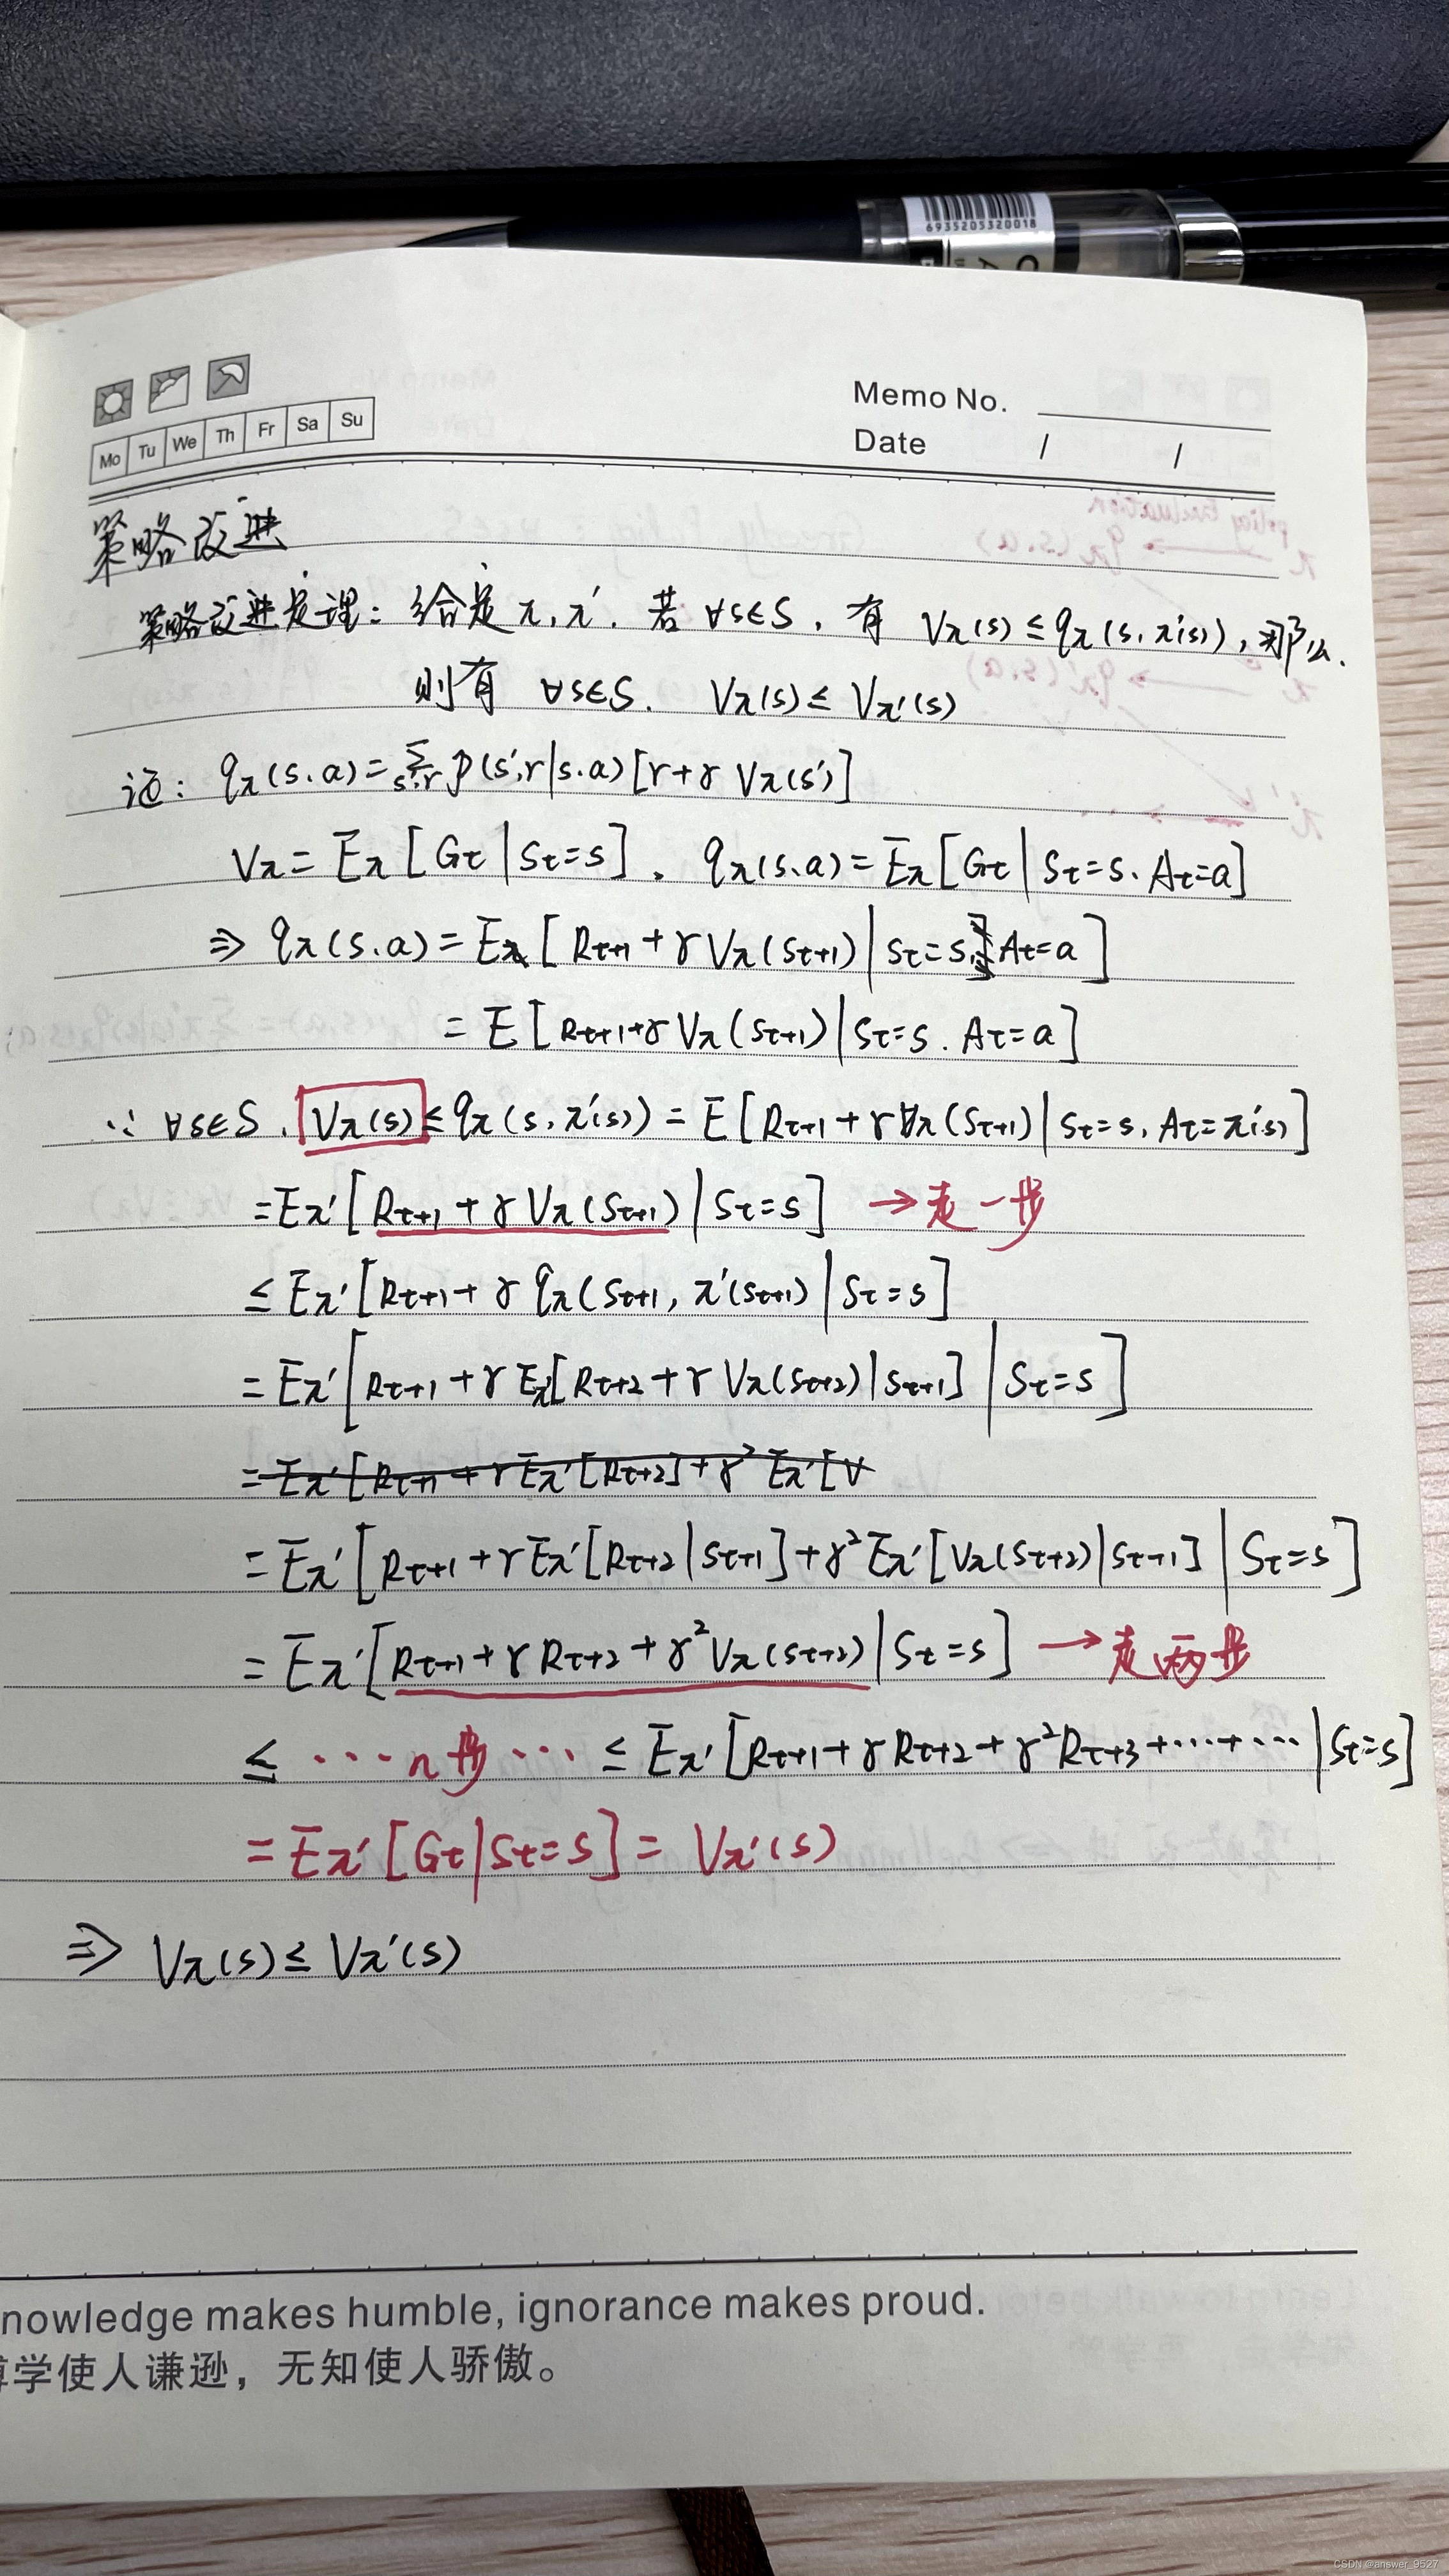 6935205320018
Mo Tu We Th Fr Sa Su
Memo No.
Date / /
策略改进
策略改进定理: 给定 π, π′. 若 ∀s∈S, 有 Vπ(s) ≤ qπ(s, π′(s)), 那么.
则有 ∀s∈S. Vπ(s) ≤ Vπ′(s)
证: qπ(s.a) = Σs′,r p(s′,r|s.a)[r+γ Vπ(s′)]
Vπ = Eπ[Gt|St=s]. qπ(s,a) = Eπ[Gt|St=s. At=a]
⇒ qπ(s.a) = Eπ[Rt+1 + γVπ(St+1)|St=s, At=a]
= E[Rt+1+γVπ(St+1)|St=s. At=a]
∵ ∀s∈S. Vπ(s) ≤ qπ(s, π′(s)) = E[Rt+1 + γVπ(St+1)|St=s, At=π′(s)]
=Eπ′[Rt+1 + γVπ(St+1)|St=s] → 走一步
≤ Eπ′[Rt+1 + γ qπ(St+1, π′(St+1)|St=s]
= Eπ′[Rt+1 + γEπ′[Rt+2 + γVπ(St+2)|St+1]|St=s]
= Eπ′[Rt+1 + γEπ′[Rt+2] + γ² Eπ′[V
= Eπ′[Rt+1 + γEπ′[Rt+2|St+1] + γ²Eπ′[Vπ(St+2)|St+1]|St=s]
= Eπ′[Rt+1 + γRt+2 + γ²Vπ(St+2)|St=s] → 走两步
≤ ··· n步 ··· ≤ Eπ′[Rt+1 + γRt+2 + γ²Rt+3 + ··· + ···|St=s]
= Eπ′[Gt|St=s] = Vπ′(s)
⇒ Vπ(s) ≤ Vπ′(s)
nowledge makes humble, ignorance makes proud.
学使人谦逊，无知使人骄傲。
CSDN @answer_9527